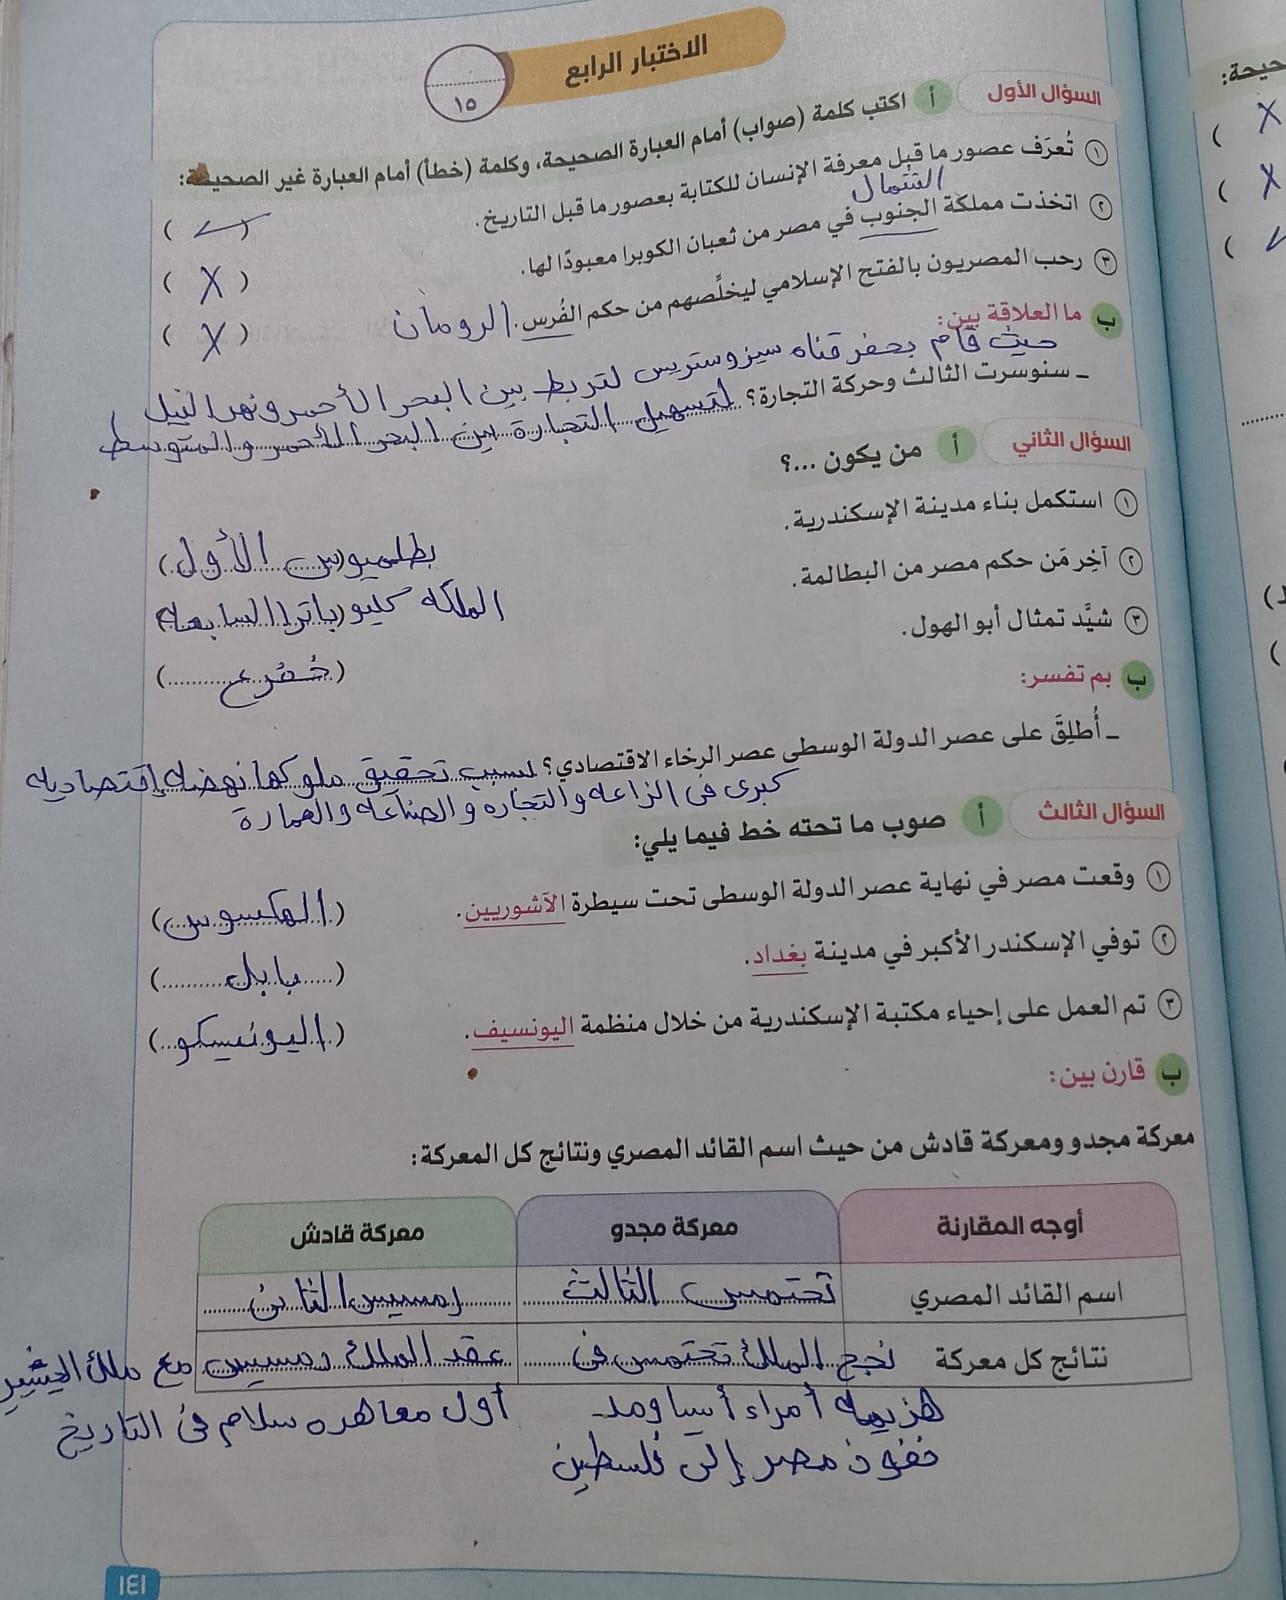 الاختبار الرابع
١٥
السؤال الأول
أ اكتب كلمة (صواب) أمام العبارة الصحيحة، وكلمة (خطأ) أمام العبارة غير الصحيحة:
١ تُعرَف عصور ما قبل معرفة الإنسان للكتابة بعصور ما قبل التاريخ. (✓)
الشمال
٢ اتخذت مملكة الجنوب في مصر من ثعبان الكوبرا معبودًا لها. (X)
٣ رحب المصريون بالفتح الإسلامي ليخلِّصهم من حكم الفُرس. الرومان (X)
ب ما العلاقة بين:
حيث قام بحفر قناه سيزوستريس لتربط بين البحر الأحمر ونهر النيل
ـ سنوسرت الثالث وحركة التجارة؟ لتسهيل التجارة بين البحر الأحمر والمتوسط
السؤال الثاني
أ من يكون ...؟
١ استكمل بناء مدينة الإسكندرية. (بطلميوس الأول)
٢ آخِر مَن حكم مصر من البطالمة. (الملكه كليوباترا السابعه)
٣ شيَّد تمثال أبو الهول. (خفرع)
ب بم تفسر:
ـ أُطلِقَ على عصر الدولة الوسطى عصر الرخاء الاقتصادي؟ بسبب تحقيق ملوكها نهضه إقتصاديه
كبرى فى الزاعه والتجاره والصناعه والعمارة
السؤال الثالث
أ صوب ما تحته خط فيما يلي:
١ وقعت مصر في نهاية عصر الدولة الوسطى تحت سيطرة الآشوريين. (الهكسوس)
٢ توفي الإسكندر الأكبر في مدينة بغداد. (بابل)
٣ تم العمل على إحياء مكتبة الإسكندرية من خلال منظمة اليونسيف. (اليونيسكو)
ب قارن بين:
معركة مجدو ومعركة قادش من حيث اسم القائد المصري ونتائج كل المعركة:
أوجه المقارنة معركة مجدو معركة قادش
اسم القائد المصري تحتمس الثالث رمسيس الثانى
نتائج كل معركة نجح الملك تحتمس فى عقد الملك رمسيس مع ملك الحيثيين
هزيمه أمراء أسيا ومد أول معاهده سلام فى التاريخ
نفوذ مصر إلى فلسطين
١٤١
حيحة:
(X
(X
(✓